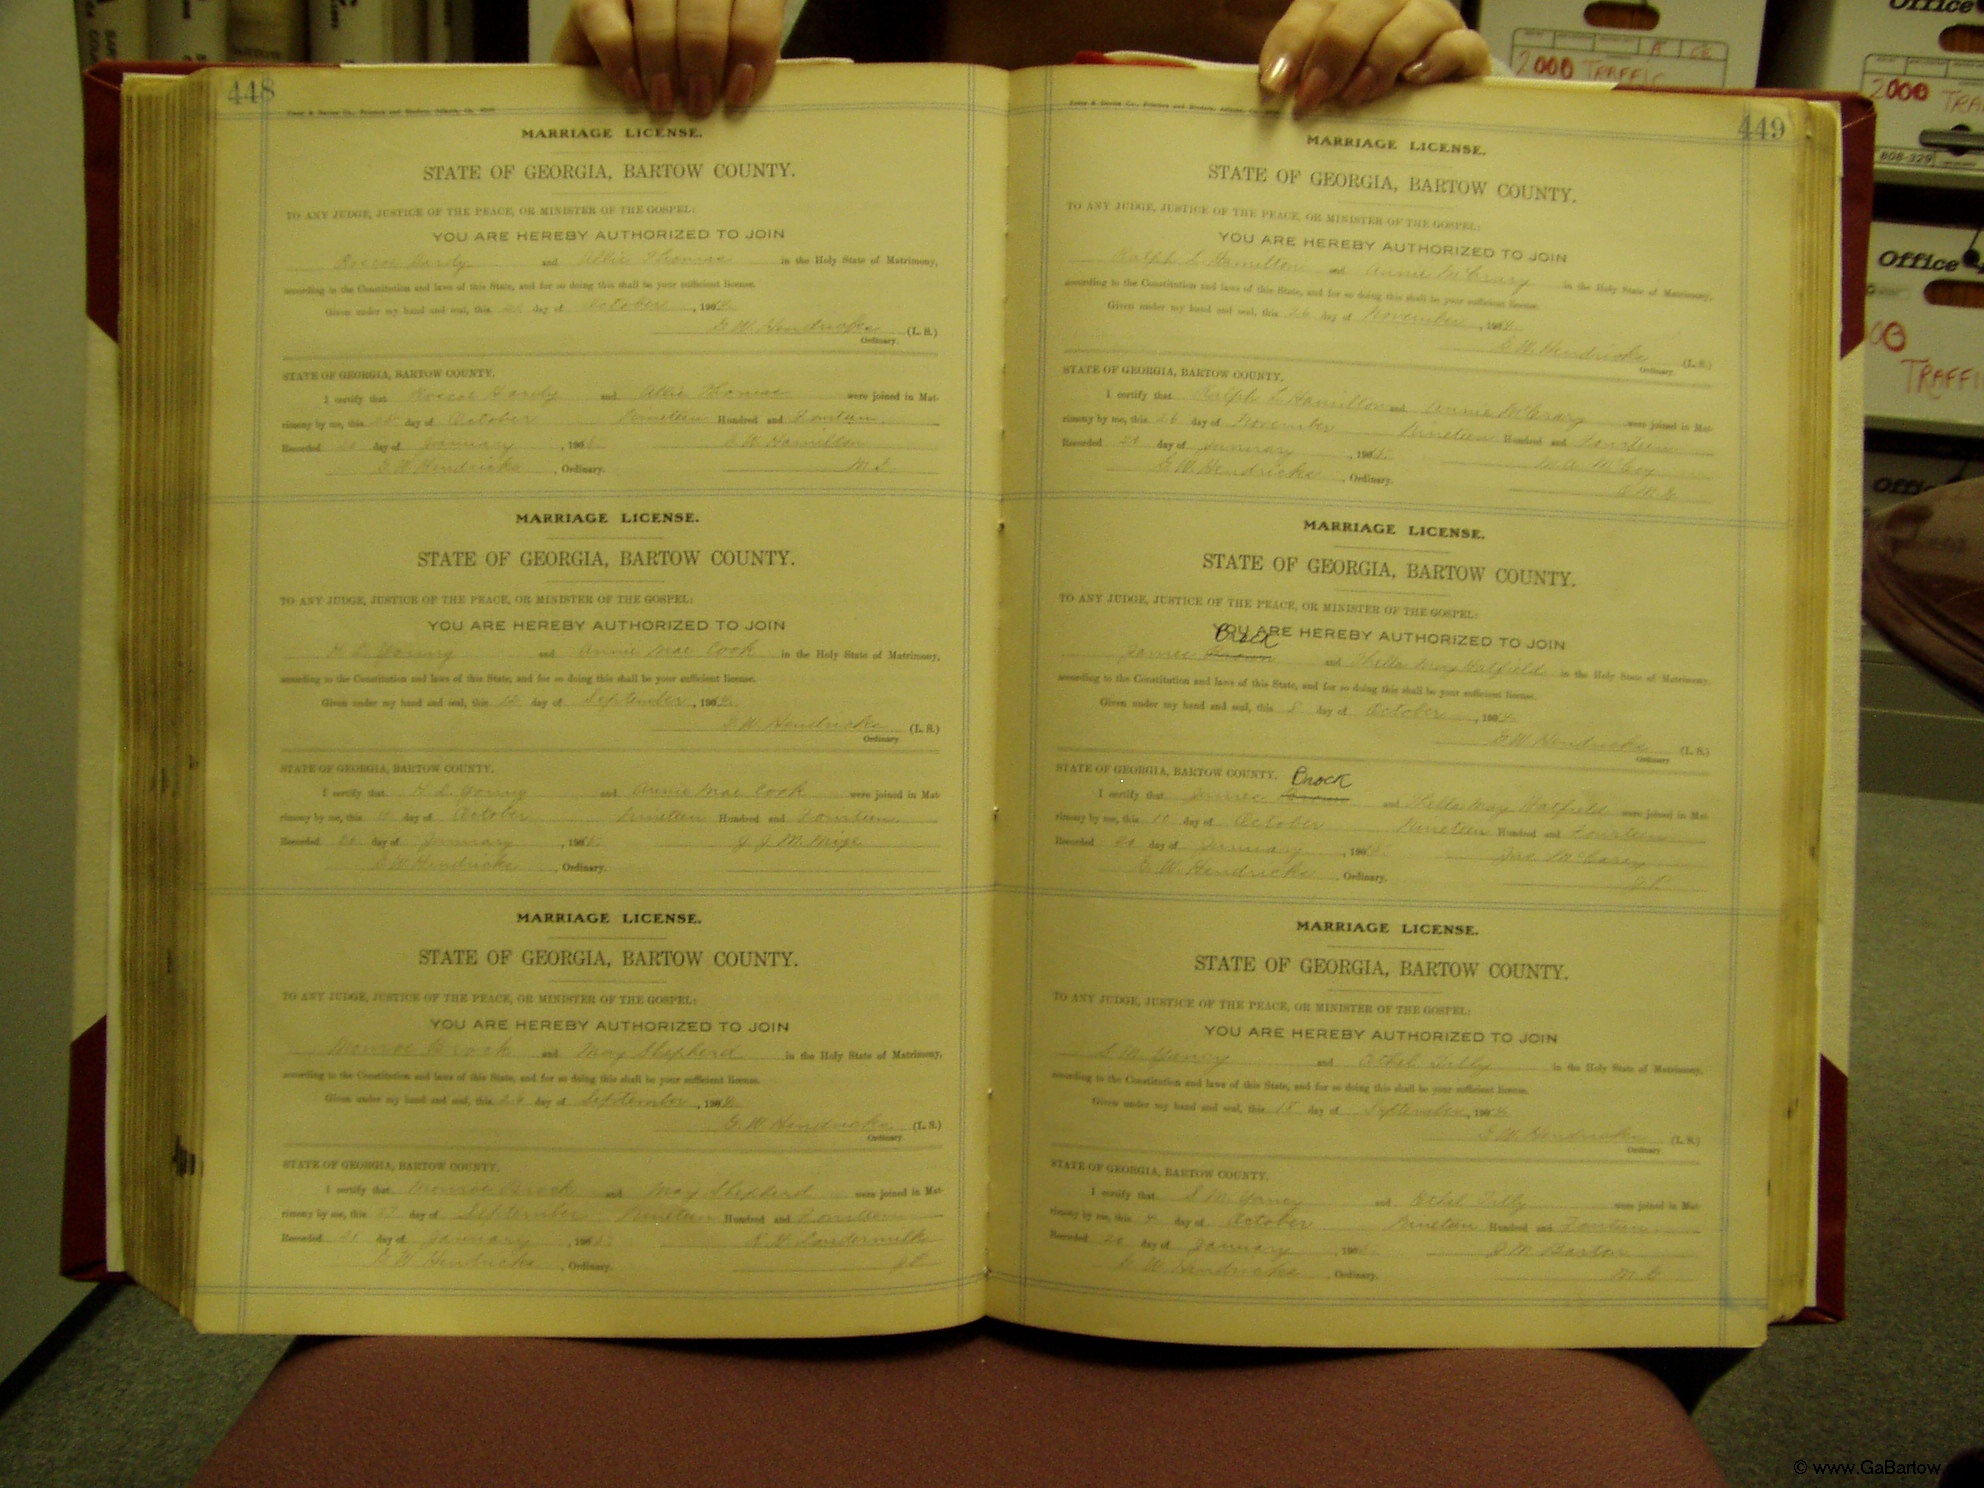 448
MARRIAGE LICENSE.
STATE OF GEORGIA, BARTOW COUNTY.
TO ANY JUDGE, JUSTICE OF THE PEACE, OR MINISTER OF THE GOSPEL:
YOU ARE HEREBY AUTHORIZED TO JOIN
Roscoe Hardy and Allie Thomas in the Holy State of Matrimony,
according to the Constitution and laws of this State, and for so doing this shall be your sufficient license.
Given under my hand and seal, this day of October, 190
G. W. Hendricks (L. S.)
Ordinary.
STATE OF GEORGIA, BARTOW COUNTY.
I certify that Roscoe Hardy and Allie Thomas were joined in Mat-
rimony by me, this day of October Nineteen Hundred and Fourteen
Recorded 20 day of January, 190 C. W. Hamilton
G. W. Hendricks, Ordinary. M. G.
MARRIAGE LICENSE.
STATE OF GEORGIA, BARTOW COUNTY.
TO ANY JUDGE, JUSTICE OF THE PEACE, OR MINISTER OF THE GOSPEL:
YOU ARE HEREBY AUTHORIZED TO JOIN
H. L. Young and Annie Mae Cook in the Holy State of Matrimony,
according to the Constitution and laws of this State, and for so doing this shall be your sufficient license.
Given under my hand and seal, this 12 day of September, 190
G. W. Hendricks (L. S.)
Ordinary
STATE OF GEORGIA, BARTOW COUNTY.
I certify that H. L. Young and Annie Mae Cook were joined in Mat-
rimony by me, this 11 day of October Nineteen Hundred and Fourteen
Recorded 20 day of January, 190 J. J. M. Mize
G. W. Hendricks, Ordinary.
MARRIAGE LICENSE.
STATE OF GEORGIA, BARTOW COUNTY.
TO ANY JUDGE, JUSTICE OF THE PEACE, OR MINISTER OF THE GOSPEL:
YOU ARE HEREBY AUTHORIZED TO JOIN
Monroe Brock and May Shepherd in the Holy State of Matrimony,
according to the Constitution and laws of this State, and for so doing this shall be your sufficient license.
Given under my hand and seal, this 26 day of September, 190
G. W. Hendricks (L. S.)
Ordinary.
STATE OF GEORGIA, BARTOW COUNTY.
I certify that Monroe Brock and May Shepherd were joined in Mat-
rimony by me, this 27 day of September Nineteen Hundred and Fourteen
Recorded 20 day of January, 190 R. H. Landermilk
G. W. Hendricks, Ordinary. J. P.
449
MARRIAGE LICENSE.
STATE OF GEORGIA, BARTOW COUNTY.
TO ANY JUDGE, JUSTICE OF THE PEACE, OR MINISTER OF THE GOSPEL:
YOU ARE HEREBY AUTHORIZED TO JOIN
Ralph L Hamilton and Annie McCrary in the Holy State of Matrimony,
according to the Constitution and laws of this State, and for so doing this shall be your sufficient license.
Given under my hand and seal, this 26 day of November, 190
G. W. Hendricks (L. S.)
Ordinary.
STATE OF GEORGIA, BARTOW COUNTY.
I certify that Ralph L Hamilton and Annie McCrary were joined in Mat-
rimony by me, this 26 day of November Nineteen Hundred and Fourteen
Recorded 20 day of January, 190
G. W. Hendricks, Ordinary.
MARRIAGE LICENSE.
STATE OF GEORGIA, BARTOW COUNTY.
TO ANY JUDGE, JUSTICE OF THE PEACE, OR MINISTER OF THE GOSPEL:
YOU ARE HEREBY AUTHORIZED TO JOIN
Brock
James Brown and Thella May Hatfield in the Holy State of Matrimony,
according to the Constitution and laws of this State, and for so doing this shall be your sufficient license.
Given under my hand and seal, this 8 day of October, 190
G. W. Hendricks (L. S.)
Ordinary
STATE OF GEORGIA, BARTOW COUNTY. Brock
I certify that James Brown and Thella May Hatfield were joined in Mat-
rimony by me, this 10 day of October Nineteen Hundred and Fourteen
Recorded 20 day of January, 190
G. W. Hendricks, Ordinary. J. P.
MARRIAGE LICENSE.
STATE OF GEORGIA, BARTOW COUNTY.
TO ANY JUDGE, JUSTICE OF THE PEACE, OR MINISTER OF THE GOSPEL:
YOU ARE HEREBY AUTHORIZED TO JOIN
S. M. Yancy and Ethel Tilly in the Holy State of Matrimony,
according to the Constitution and laws of this State, and for so doing this shall be your sufficient license.
Given under my hand and seal, this 18 day of September, 190
G. W. Hendricks (L. S.)
Ordinary
STATE OF GEORGIA, BARTOW COUNTY.
I certify that S. M. Yancy and Ethel Tilly were joined in Mat-
rimony by me, this 4 day of October Nineteen Hundred and Fourteen
Recorded 20 day of January, 190 J. M. Barton
G. W. Hendricks, Ordinary. M. G.
Office
2000 TRAFFIC
2000 TRA
Office
TRAFFI
© www.GaBartow